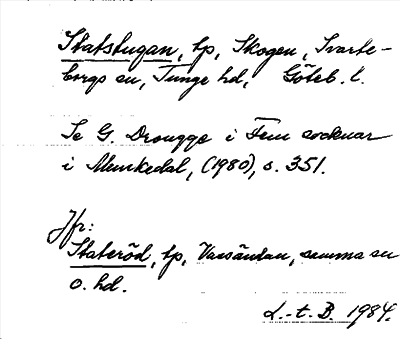 Statstugan, tp, Skogen, Svarte-
borgs sn, Tunge hd, Göteb. l.
Se G. Drougge i Fem socknar
i Munkedal, (1980), s. 351.
Jfr:
Stateröd, tp, Vassändan, samma sn
o. hd.
L.-t. B. 1984.